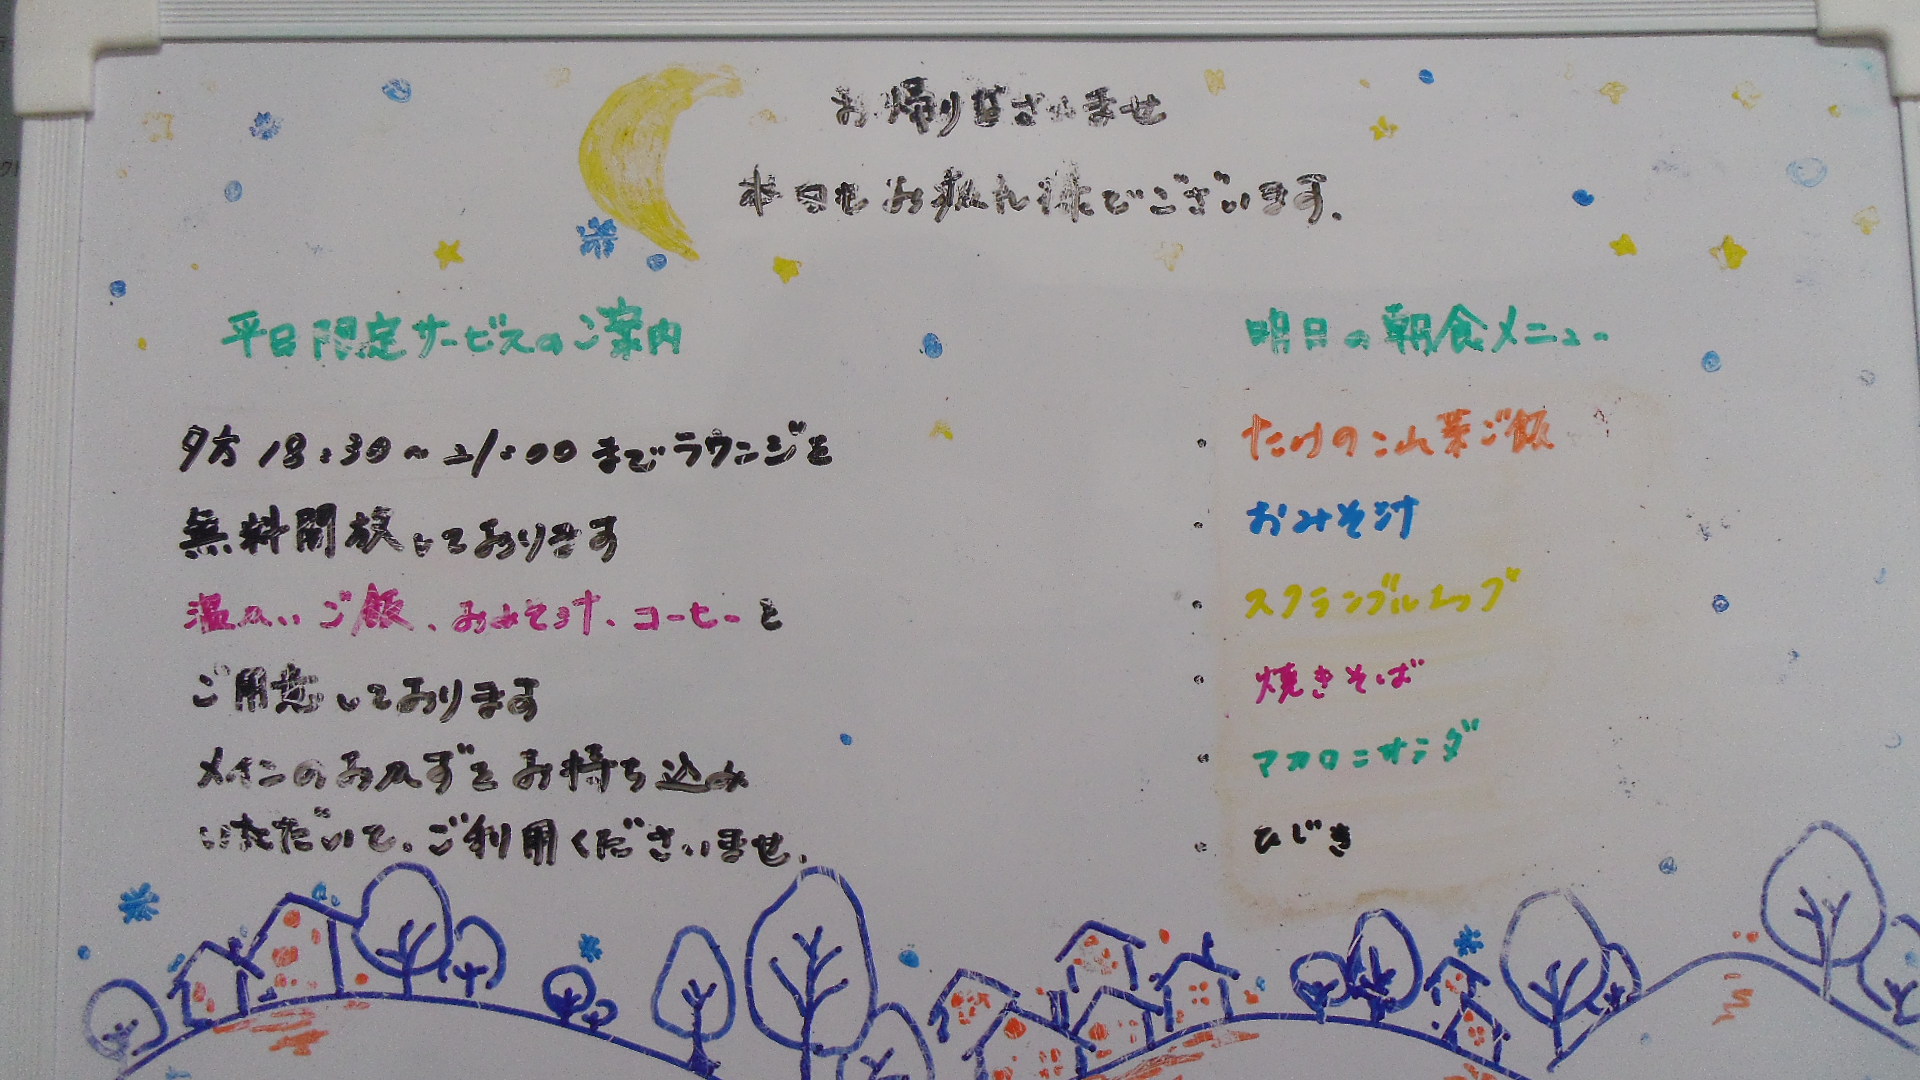 お帰りなさいませ
本日もお疲れ様でございます。
平日限定サービスのご案内
夕方 18:30～21:00 までラウンジを
無料開放しております
温かいご飯、おみそ汁、コーヒーを
ご用意しております
メインのおかずをお持ち込み
いただいて、ご利用くださいませ。
明日の朝食メニュー
・たけのこ山菜ご飯
・おみそ汁
・スクランブルエッグ
・焼きそば
・マカロニサラダ
・ひじき